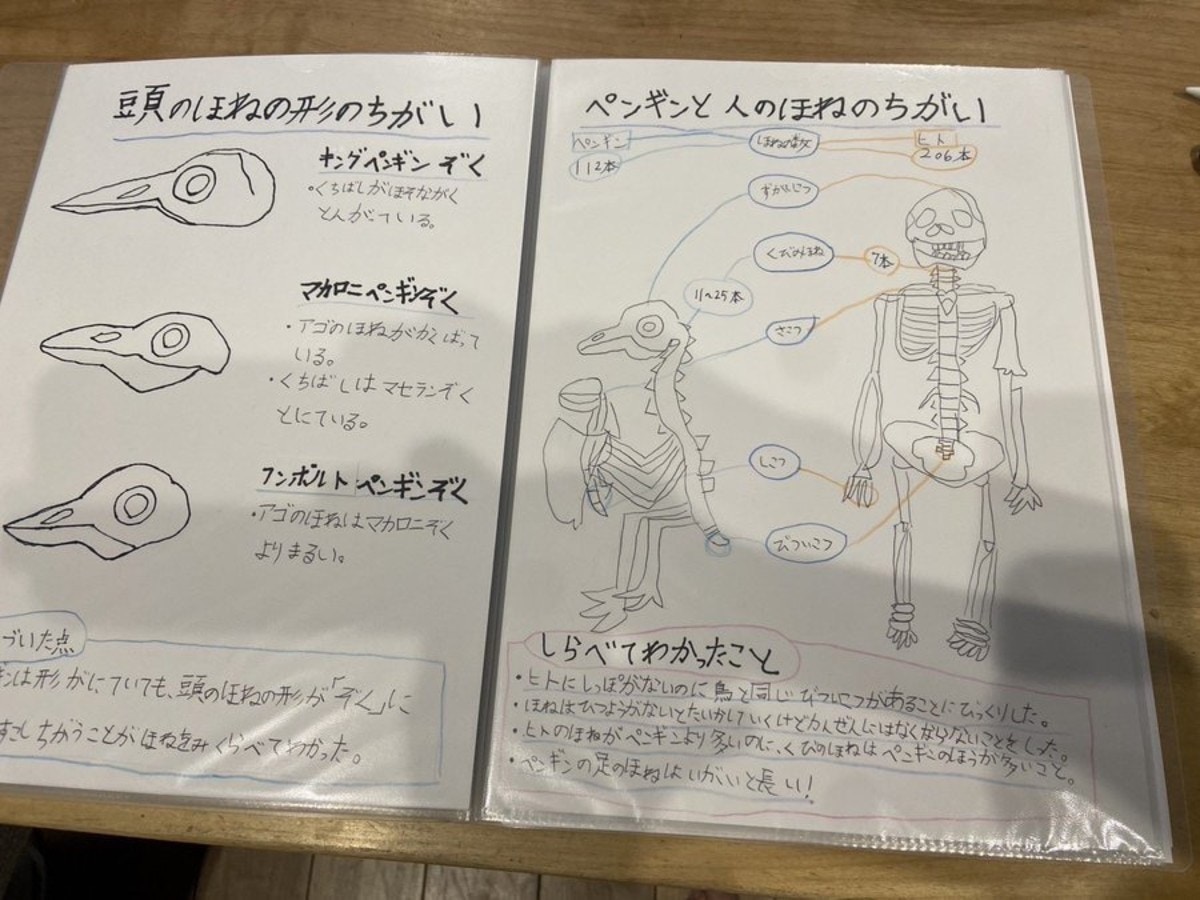 頭のほねの形のちがい
キングペンギン ぞく
・くちばしがほそながく
とんがている。
マカロニペンギンぞく
・アゴのほねがかくばって
いる。
・くちばしはマセランぞく
とにている。
フンボルト ペンギンぞく
・アゴのほねはマカロニぞく
よりまるい。
づいた点
ギンは形がにていても、頭のほねの形が「ぞく」に
すこしちがうことがほねをみくらべてわかった。
ペンギンと人のほねのちがい
ペンギン ほねの数 ヒト
112本 206本
ずがいこつ
くびのほね 7本
11〜25本
さこつ
しこつ
びついこつ
しらべてわかったこと
・ヒトにしっぽがないのに鳥と同じびついこつがあることにびっくりした。
・ほねはひつようがないとたいかしていくけどかんぜんにはなくならないことをした。
・ヒトのほねがペンギンより多いのに、くびのほねはペンギンのほうが多いこと。
・ペンギンの足のほねはいがいと長い!